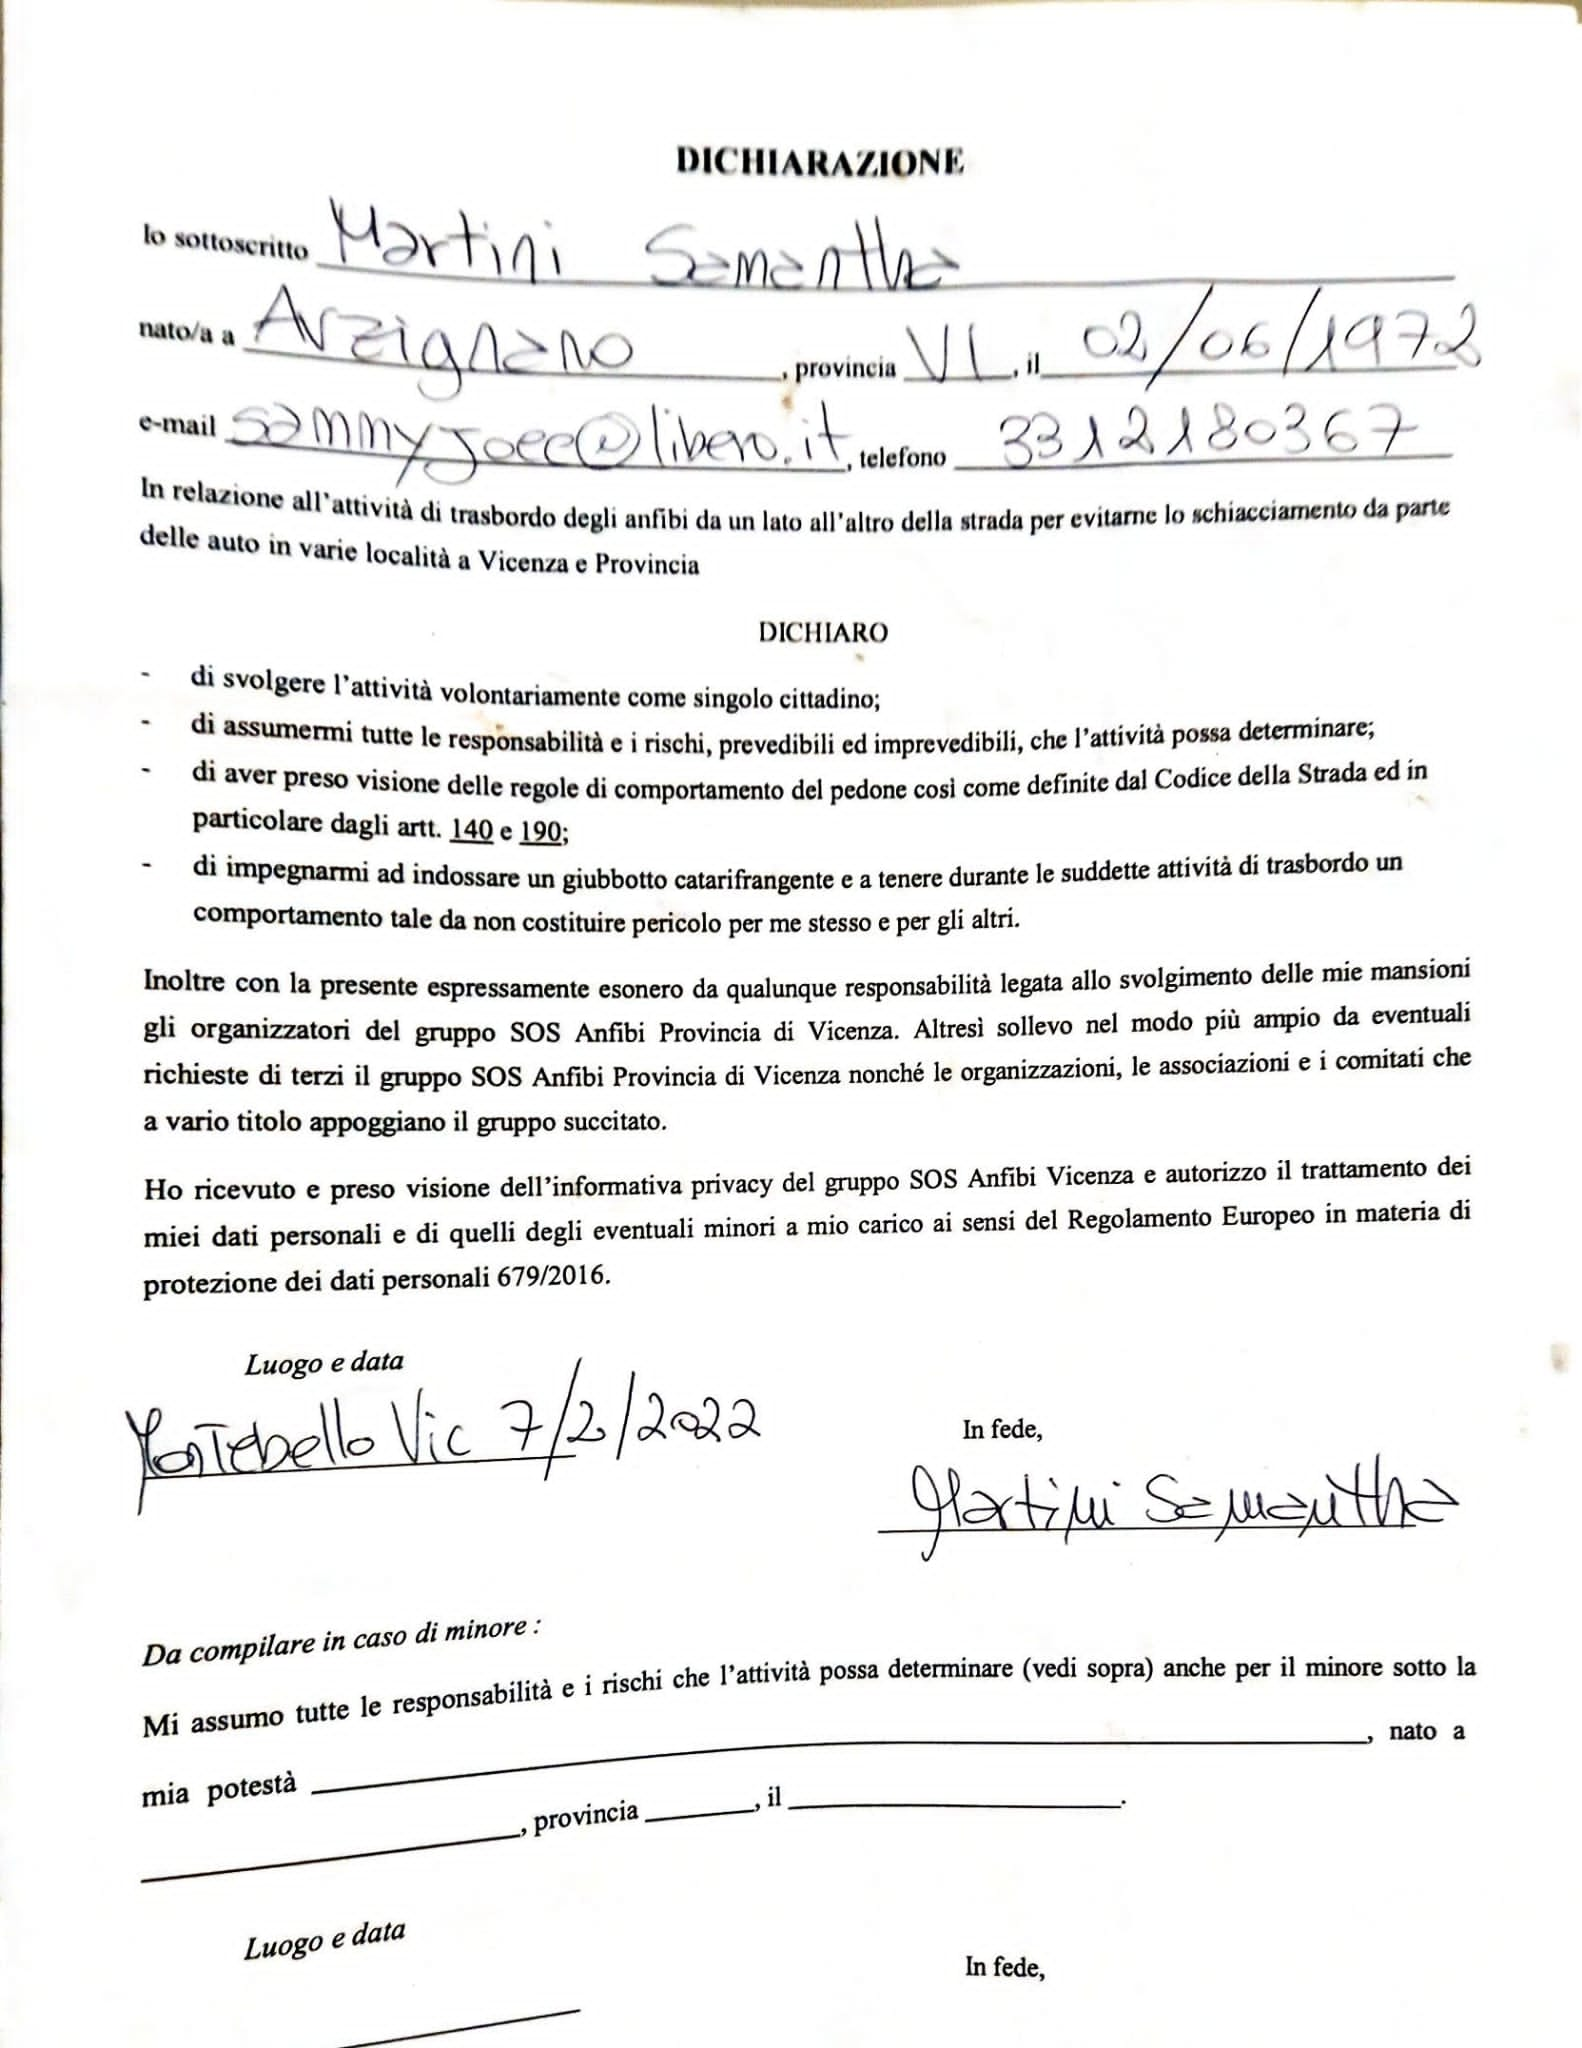 DICHIARAZIONE
Io sottoscritto Martini Samantha
nato/a a Arzignano, provincia VI, il 02/06/1972
e-mail sammyjoec@libero.it, telefono 3312180367
In relazione all'attività di trasbordo degli anfibi da un lato all'altro della strada per evitarne lo schiacciamento da parte
delle auto in varie località a Vicenza e Provincia
DICHIARO
- di svolgere l'attività volontariamente come singolo cittadino;
- di assumermi tutte le responsabilità e i rischi, prevedibili ed imprevedibili, che l'attività possa determinare;
- di aver preso visione delle regole di comportamento del pedone così come definite dal Codice della Strada ed in
particolare dagli artt. 140 e 190;
- di impegnarmi ad indossare un giubbotto catarifrangente e a tenere durante le suddette attività di trasbordo un
comportamento tale da non costituire pericolo per me stesso e per gli altri.
Inoltre con la presente espressamente esonero da qualunque responsabilità legata allo svolgimento delle mie mansioni
gli organizzatori del gruppo SOS Anfibi Provincia di Vicenza. Altresì sollevo nel modo più ampio da eventuali
richieste di terzi il gruppo SOS Anfibi Provincia di Vicenza nonché le organizzazioni, le associazioni e i comitati che
a vario titolo appoggiano il gruppo succitato.
Ho ricevuto e preso visione dell'informativa privacy del gruppo SOS Anfibi Vicenza e autorizzo il trattamento dei
miei dati personali e di quelli degli eventuali minori a mio carico ai sensi del Regolamento Europeo in materia di
protezione dei dati personali 679/2016.
Luogo e data
Montebello Vic 7/2/2022
In fede,
Martini Samantha
Da compilare in caso di minore :
Mi assumo tutte le responsabilità e i rischi che l'attività possa determinare (vedi sopra) anche per il minore sotto la
mia potestà , nato a
, provincia , il .
Luogo e data
In fede,